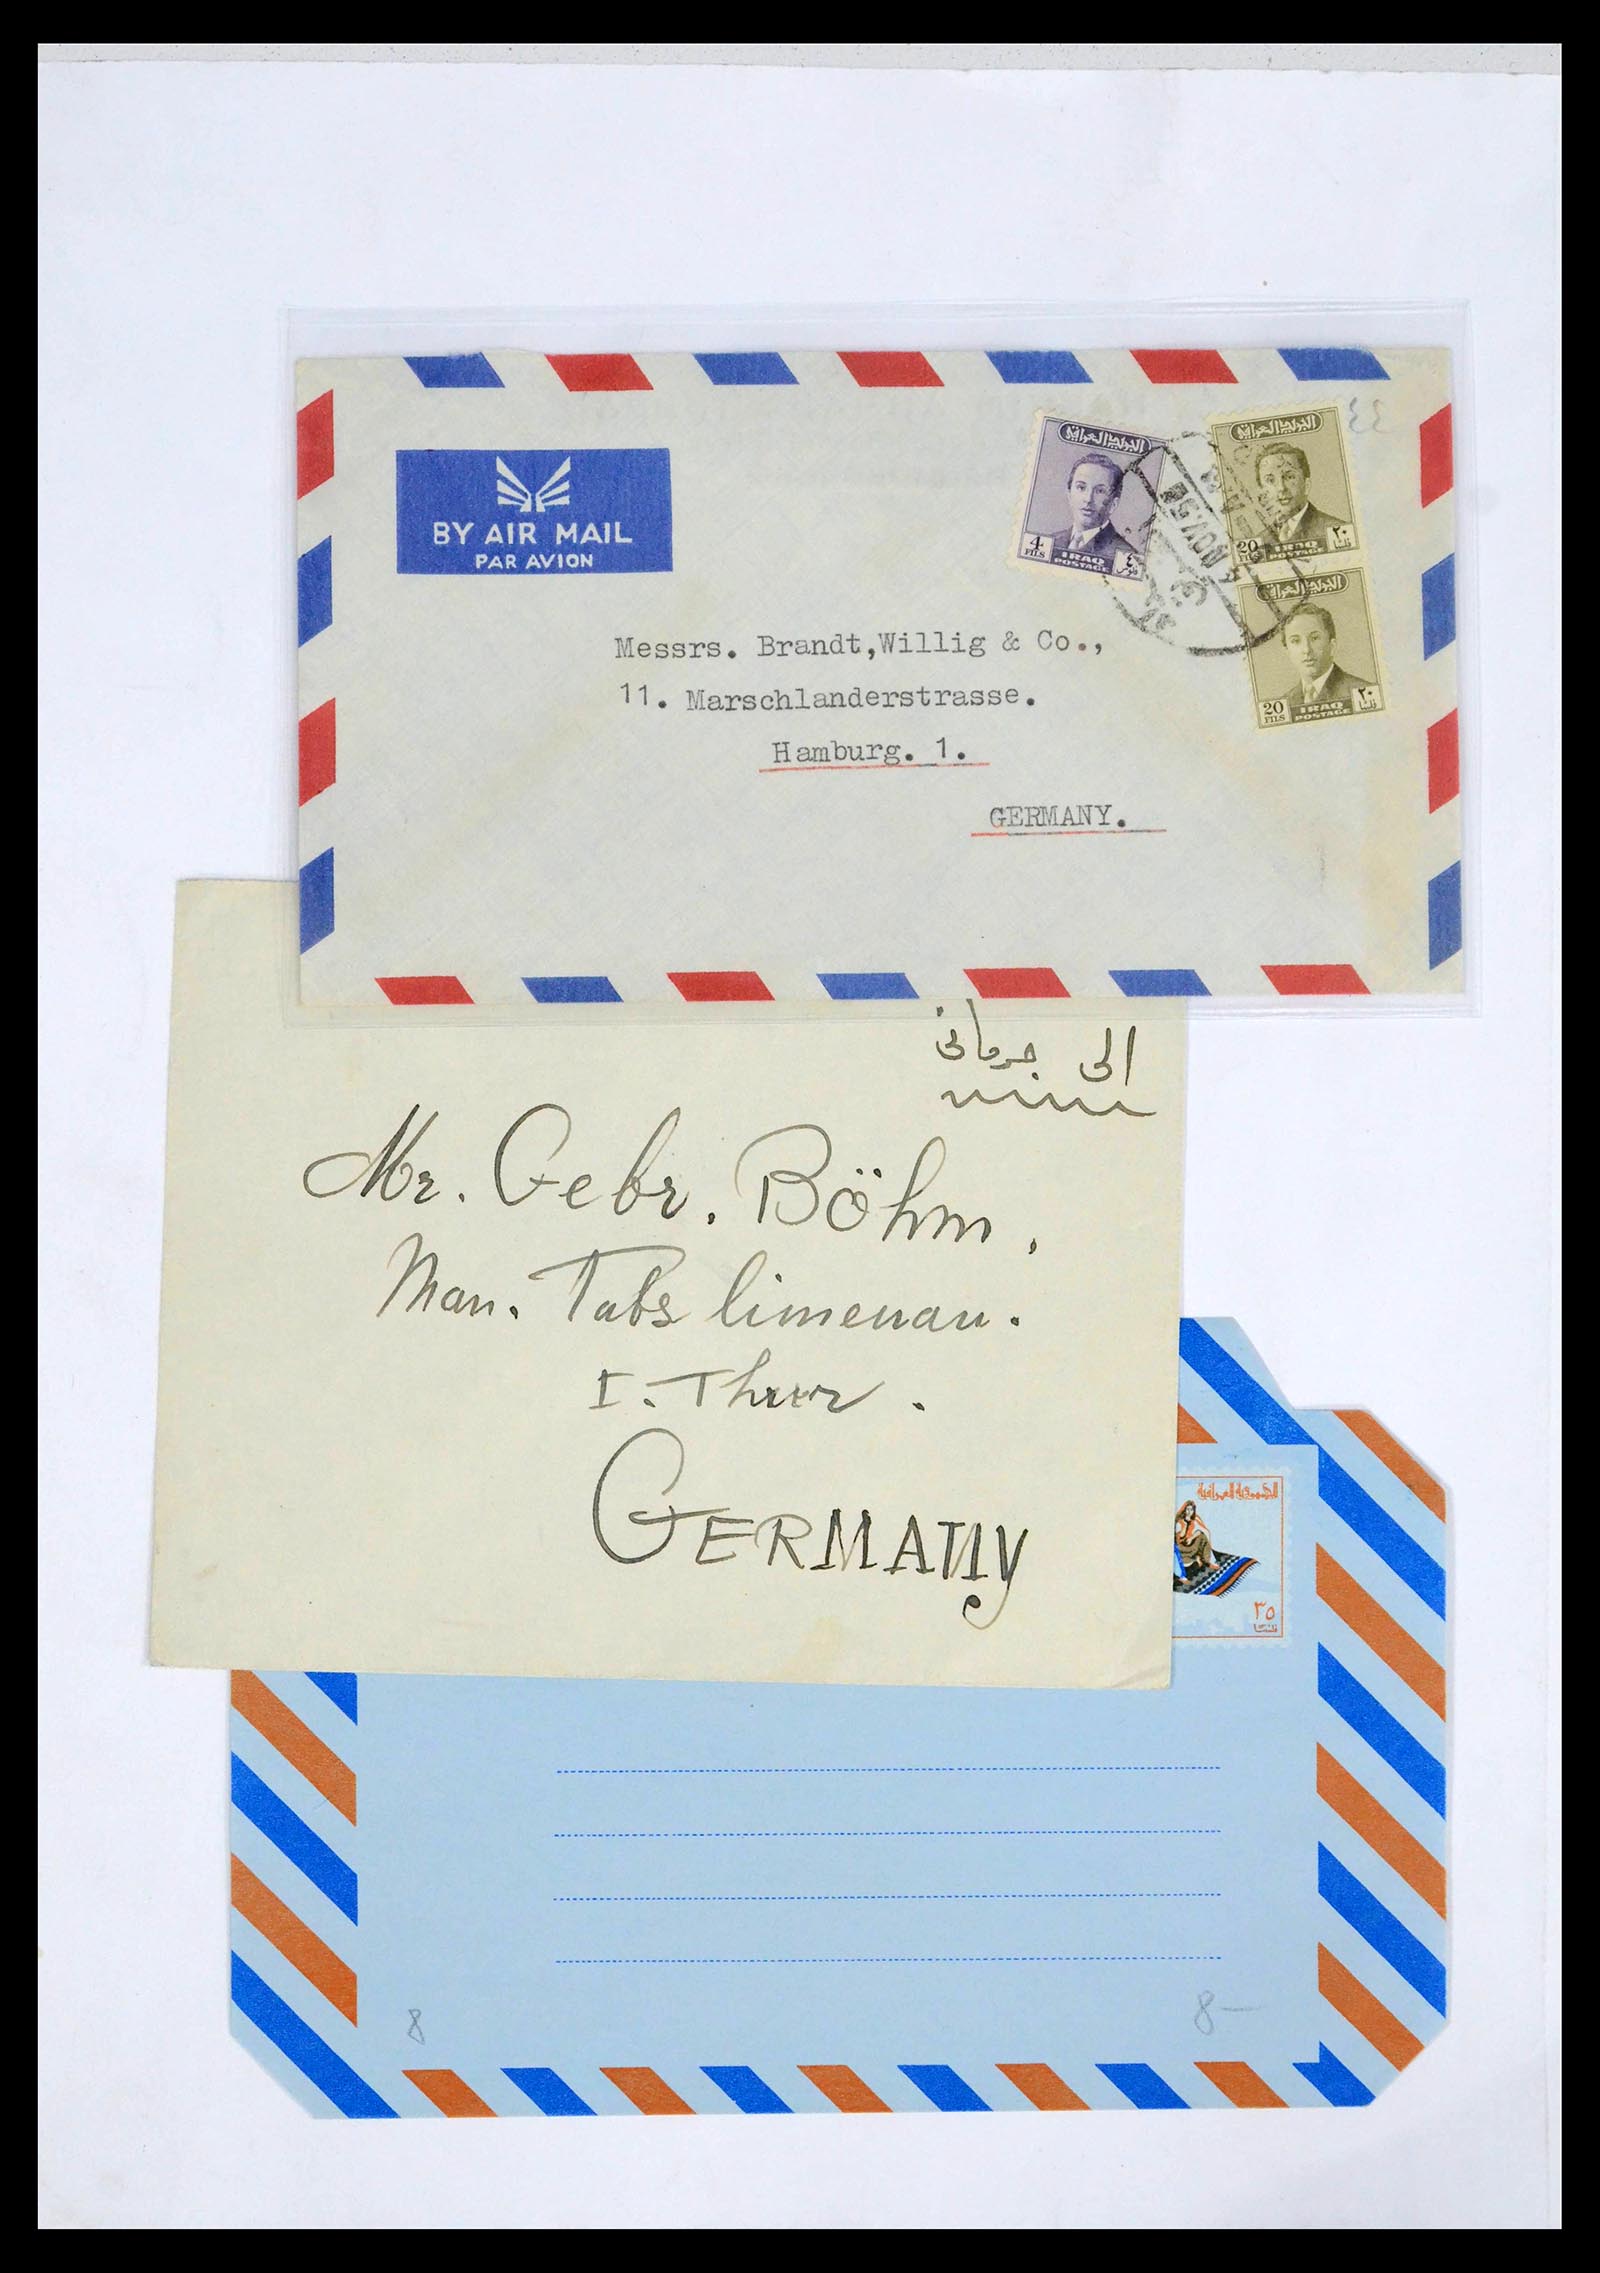 BY AIR MAIL
PAR AVION
البريد العراقي
4
FILS
IRAQ
POSTAGE
٤
فلوس
البريد العراقية
20
FILS
IRAQ
POSTAGE
٢٠
فلسا
البريد العراقية
20
FILS
IRAQ
POSTAGE
٢٠
فلسا
NOV.5
Messrs. Brandt,Willig & Co.,
11. Marschlanderstrasse.
Hamburg. 1.
GERMANY.
الى جرمانى
Mr. Gebr. Böhm.
Man. Tabs limenau.
I. Thur.
GERMANY
الجمهورية العراقية
٣٥
فلسا
8
8-